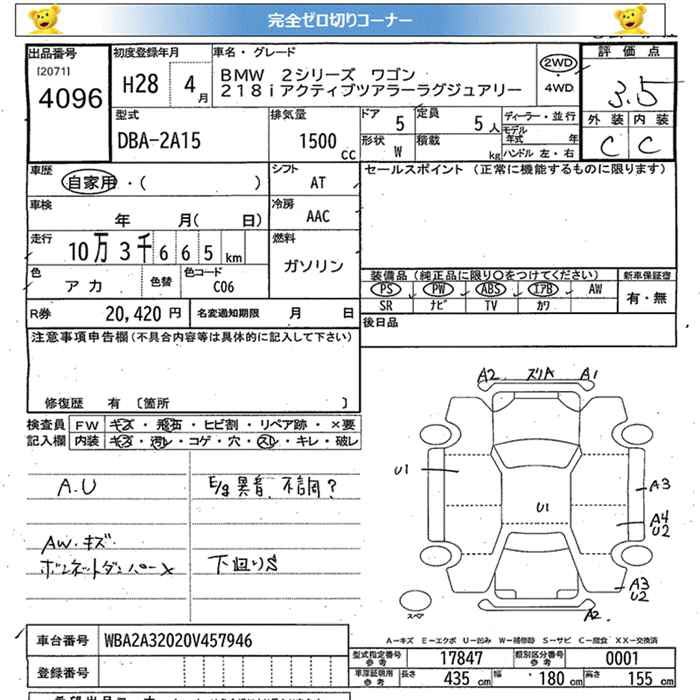 完全ゼロ切りコーナー
出品番号
[2071]
4096
初度登録年月
H28 4月
車名・グレード
BMW 2シリーズ ワゴン
218iアクティブツアラーラグジュアリー
2WD
・
4WD
評価点
3.5
外装 内装
C C
型式
DBA-2A15
排気量
1500cc
ドア 5
定員 5人
形状 W
積載 kg
ディーラー・並行
モデル年式 年
ハンドル 左・右
車歴
自家用・( )
シフト
AT
セールスポイント (正常に機能するものに限ります)
車検
年 月( 日)
冷房
AAC
走行
10万 3千 6 6 5 km
燃料
ガソリン
色
アカ
色替
色コード
C06
装備品(純正品に限り○をつけてください)
新車保証書
有・無
PS PW ABS エアB AW
SR ナビ TV カワ
R券 20,420円
名変通知期限 月 日
後日品
注意事項申告欄(不具合内容等は具体的に記入して下さい)
修復歴 有 [箇所 ]
検査員記入欄
FW キズ・飛石・ヒビ割・リペア跡・×要
内装 キズ・汚レ・コゲ・穴・スレ・キレ・破レ
A.U
E/g異音、不調?
AW.キズ
ボンネットダンパー×
下廻りS
A2 スリA A1
U1
U1
A3
A4
U2
A3
U2
A2
スペア
A-キズ E-エクボ U-凹み W-補修跡 S-サビ C-腐食 XX-交換済
車台番号 WBA2A32020V457946
登録番号
型式指定番号 参考 17847
類別区分番号 参考 0001
車庫証明用 参考 長さ 435cm 幅 180cm 高さ 155cm